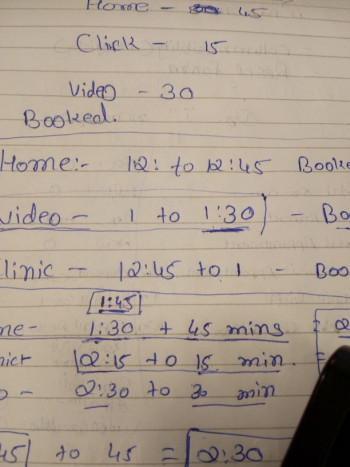 Home - 45
Click - 15
Video - 30
Booked.
Home:- 12: to 12:45 Booke
video - 1 to 1:30 - Bo
linic - 12:45 to 1 - Boo
1:45
me - 1:30 + 45 mins =
nic 02:15 to 15 min. =
o - 02:30 to 30 min
45 to 45 = 02:30